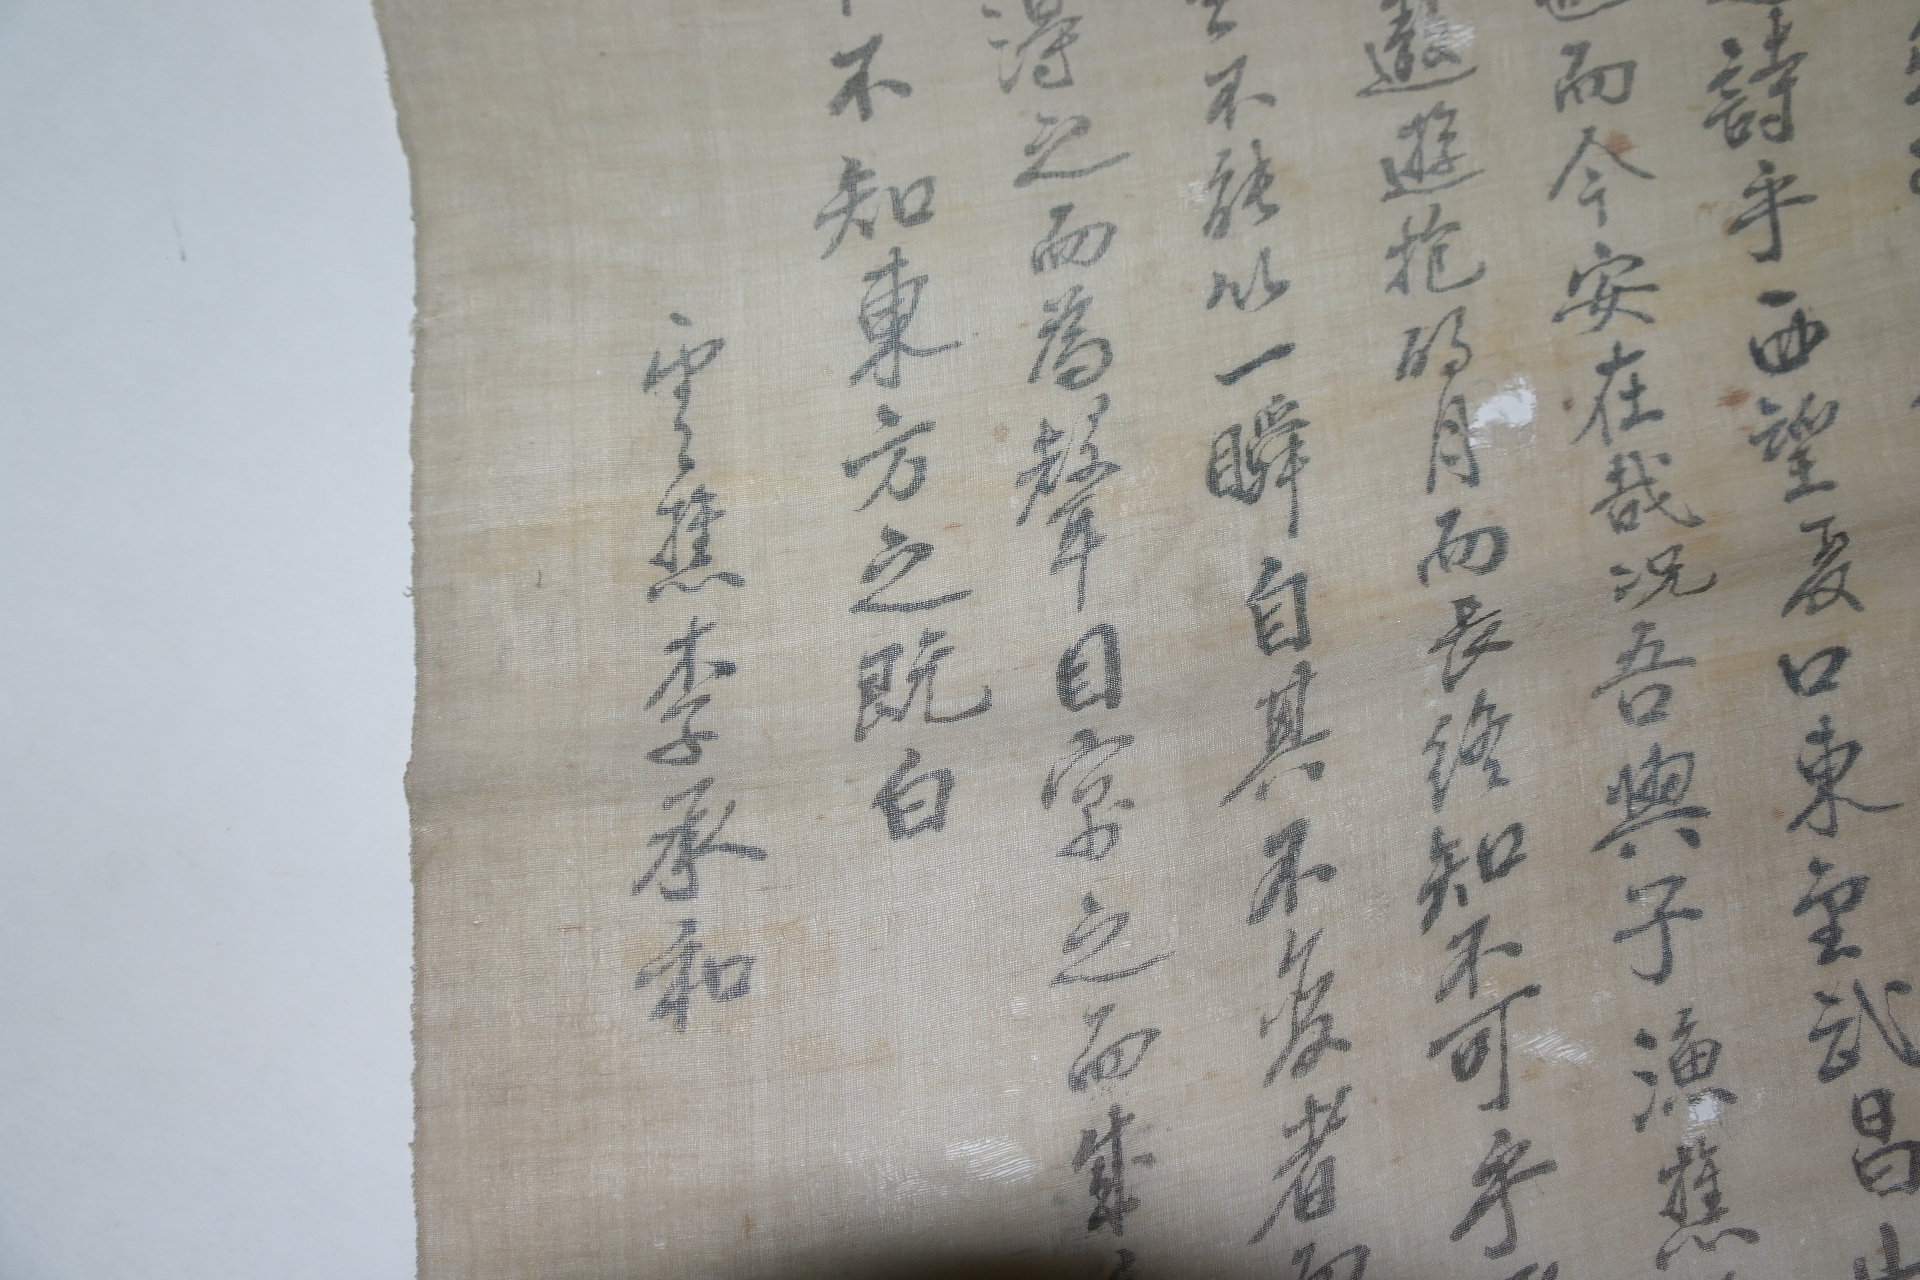 詩乎西望夏口東望武昌山
也而今安在哉況吾與子漁樵
遨遊抱明月而長終知不可乎
不能以一瞬自其不變者而
得之而為聲目寓之而成
不知東方之既白
雲樵李承和